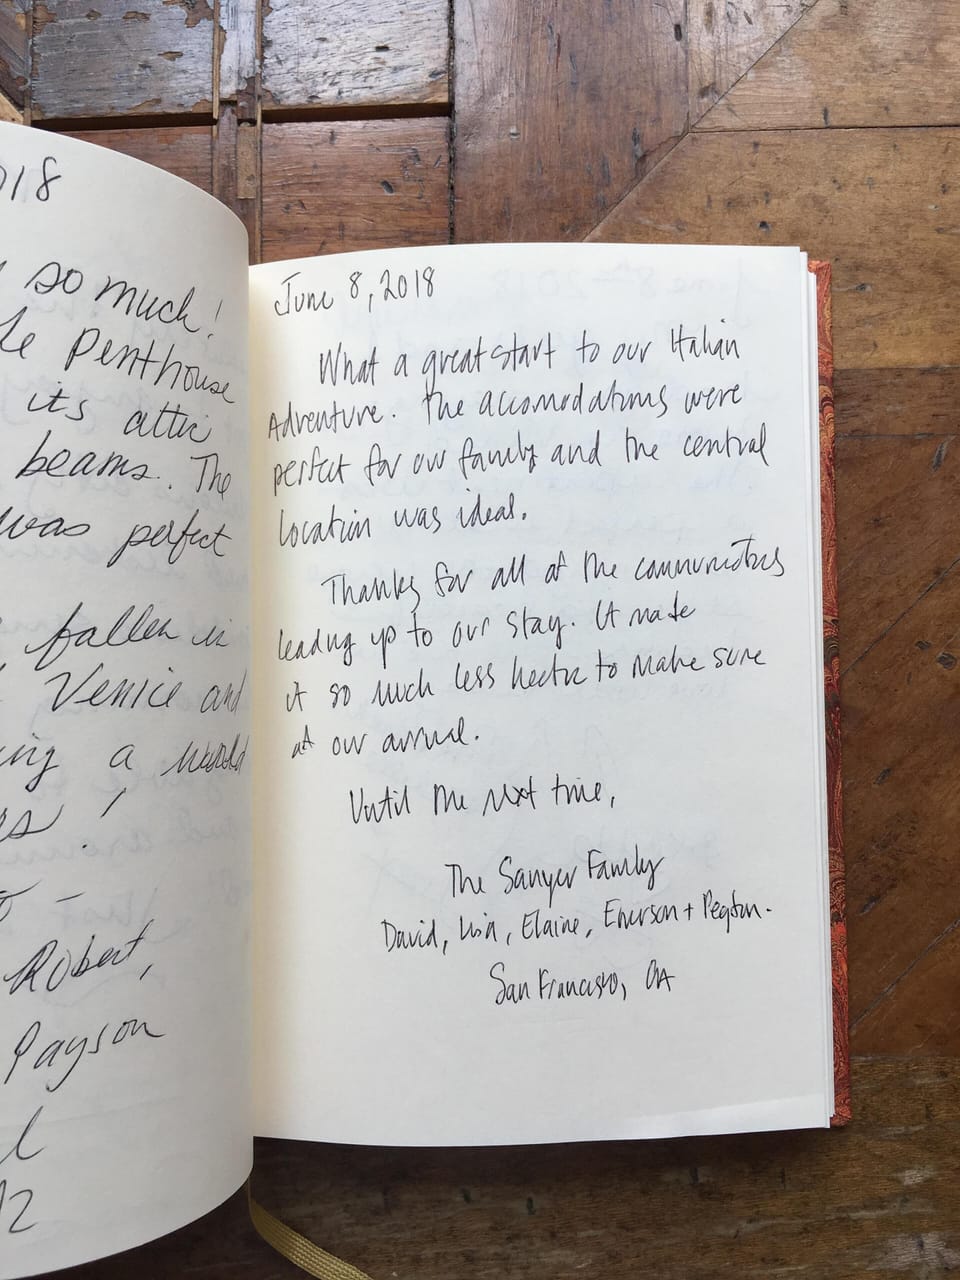 018
so much!
Penthouse
its attic
beams. The
was perfect
fallen in
Venice and
a world
Robert,
Payson
June 8, 2018
What a great start to our Italian
Adventure. The accomodations were
perfect for our family and the central
location was ideal.
Thanks for all of the
leading up to our stay. It made
it so much less hectic to make sure
at our arrival.
Until the next time,
The Sawyer Family
David, Lisa, Elaine, Emerson + Peyton.
San Francisco, CA